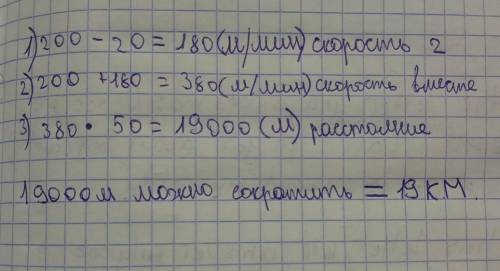 1) 200 - 20 = 180 (м/мин) скорость 2
2) 200 + 180 = 380 (м/мин) скорость вместе
3) 380 · 50 = 19000 (м) расстояние
19000 м можно сократить = 19 КМ.